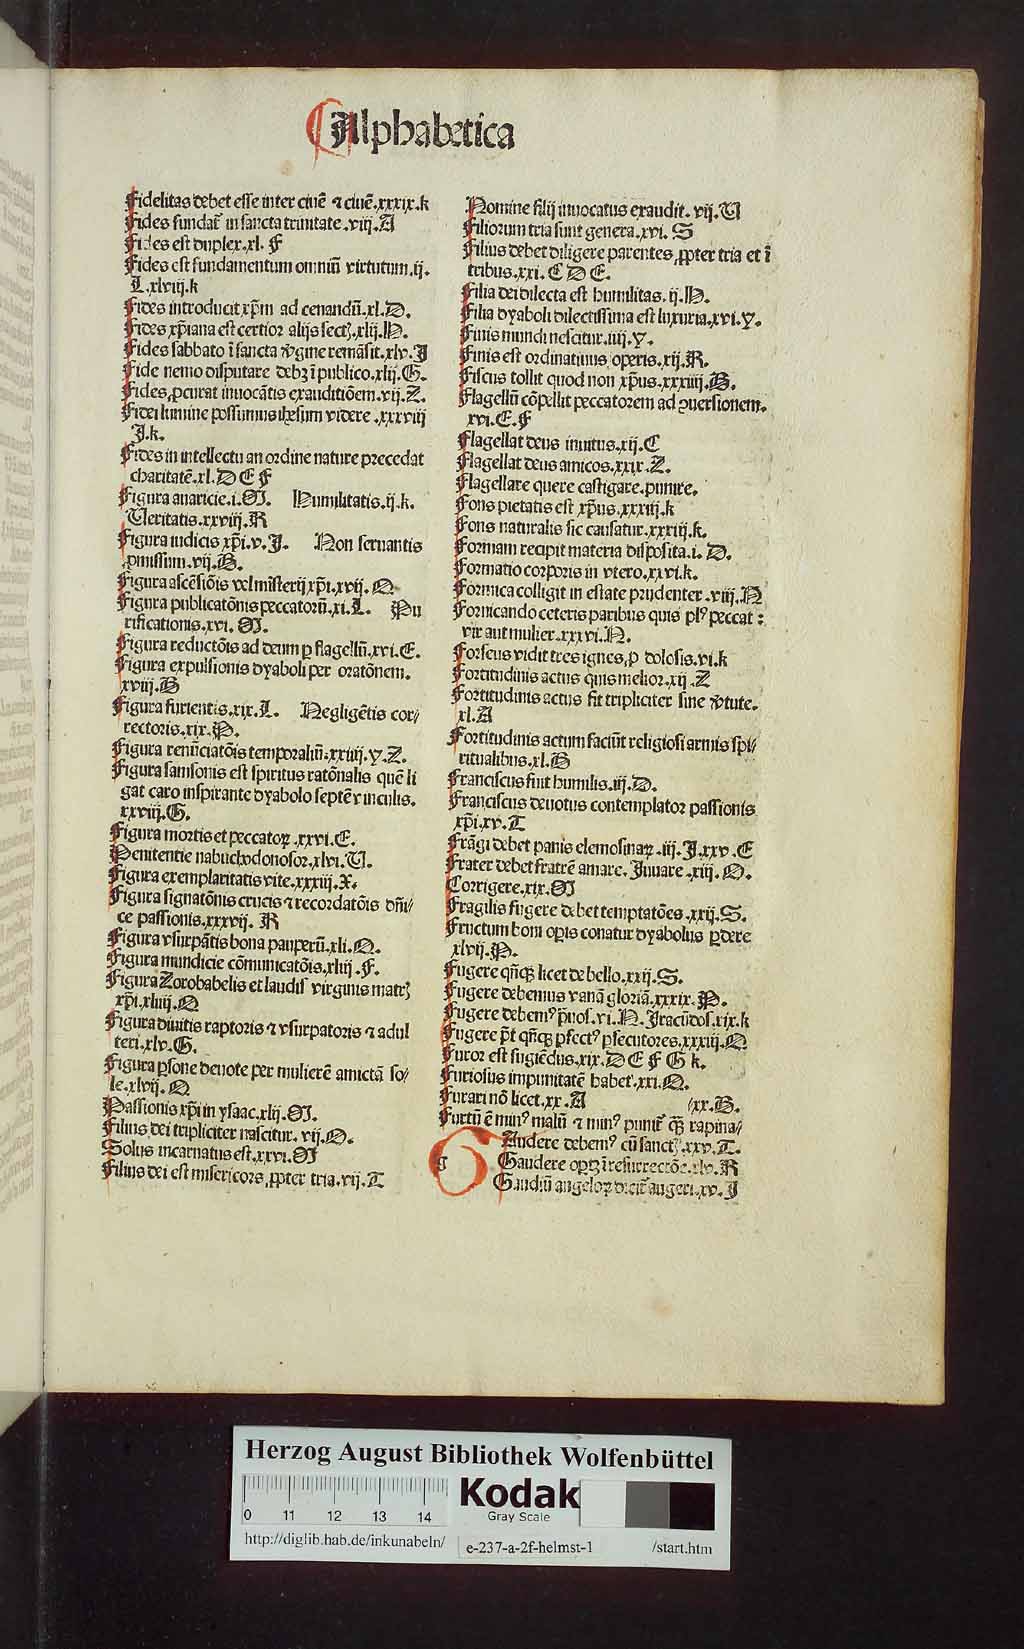 Alphabetica
Fidelitas debet esse inter ciuē ⁊ ciuē.xxxix.k
Fides fundat᷑ in sancta trinitate.viij.A
Fides est duplex.xl.F
Fides est fundamentum omniū virtutum.ij.
L.xlviij.k
Fides introducit xp̄m ad cenandū.xl.D.
Fides xp̄iana est certior alijs sectꝫ.xlij.N.
Fides sabbato ī sancta v̓gine remāsit.xlv.I
Fide nemo disputare debꝫ ī publico.xlij.G.
Fides ꝓcurat inuocātis exauditiōem.vij.Z.
Fidei lumine possumus ihesum videre.xxxviij
I.k.
Fides in intellectu an ordine nature precedat
charitatē.xl.D E F
Figura auaricie.i.M. Humilitatis.ij.k.
Veritatis.xxviij.R
Figura iudicis xp̄i.v.I. Non seruantis
ꝓmissum.vij.B.
Figura ascēsiōis vel misterij xp̄i.xvij.Q
Figura publicatōnis peccatorū.xi.L. Pu
rificationis.xvi.M.
Figura reductōis ad deum ꝑ flagellū.xvi.E.
Figura expulsionis dyaboli per oratōnem.
xviij.B
Figura furientis.xix.L. Negligētis cor⸗
rectoris.xix.P.
Figura renūciatōis temporaliū.xxiiij.Y.Z.
Figura samsonis est spiritus ratōnalis quē li
gat caro inspirante dyabolo septē vinculis.
xxviij.G.
Figura mortis et peccatoꝝ.xxvi.E.
Penitentie nabuchodonosor.xlvi.V.
Figura exemplaritatis vite.xxxiij.X.
Figura signatōnis crucis ⁊ recordatōis dn̄i⸗
ce passionis.xxxvij.R
Figura vsurpātis bona pauperū.xli.Q.
Figura mundicie cōmunicatōis.xliij.F.
Figura Zorobabelis et laudis virginis matrꝫ
xp̄i.xliiij.Q
Figura diuitis raptoris ⁊ vsurpatoris ⁊ adul
teri.xlv.G.
Figura ꝑsone deuote per mulierē amictā so⸗
le.xlvij.Q
Passionis xp̄i in ysaac.xlij.M.
Filius dei tripliciter nascitur.vij.Q.
Solus incarnatus est.xxvi.M
Filius dei est misericors ꝓpter tria.vij.T
Nomine filij inuocatus exaudit.vij.V
Filiorum tria sunt genera.xvi.S
Filius debet diligere parentes ꝓpter tria et ī
tribus.xxi.C D E.
Filia dei dilecta est humilitas.ij.N.
Filia dyaboli dilectissima est luxuria.xvi.Y.
Finis mundi nescitur.iiij.Y.
Finis est ordinatiuus operis.xij.R.
Fiscus tollit quod non xp̄us.xxxiiij.B.
Flagellū cōpellit peccatorem ad ꝯuersionem.
xvi.E.F
Flagellat deus inuitus.xij.C
Flagellat deus amicos.xxix.Z.
Flagellare quere castigare.punire.
Fons pietatis est xp̄us.xxxiij.k
Fons naturalis sic causatur.xxxiij.k.
Formam recipit materia disposita.i.D.
Formatio corporis in vtero.xxvi.k.
Formica colligit in estate prudenter.viij.N
Fornicando ceteris paribus quis plꝰ peccat:
vir aut mulier.xxxvi.N.
Forseus vidit tres ignes ꝓ dolosis.vi.k
Fortitudinis actus quis melior.xij.Z
Fortitudinis actus fit tripliciter sine v̓tute.
xl.A
Fortitudinis actum faciūt religiosi armis spi⸗
ritualibus.xl.B
Franciscus fuit humilis.iij.D.
Franciscus deuotus contemplator passionis
xp̄i.xv.T
Frāgi debet panis elemosinaꝝ.iij.I.xxv.E
Frater debet fratrē amare. Iuuare.xiij.Q.
Corrigere.xix.M
Fragilis fugere debet temptatōes.xxij.S.
Fructum boni oꝑis conatur dyabolus ꝑdere
xlvij.P.
Fugere qn̄qꝫ licet de bello.xxij.S.
Fugere debemus vanā gloriā.xxxix.P.
Fugere debemꝰ ꝓ̄uos.vi.N. Iracūdos.xix.k
Fugere p̄t qn̄qꝫ ꝑfectꝰ ꝑsecutores.xxxiij.Q
Furor est fugiēdus.xix.D E F G k.
Furiosus impunitatē habet.xxi.Q.
Furari nō licet.xx.A
Furtū ē minꝰ malū ⁊ minꝰ punit᷑ qꝫ̄ rapina⸗ ⸗xx.B.
g Gaudere debemꝰ cū sanctꝫ.xxv.T.
Gaudere oꝑtꝫ ī resurrectōe.xlv.R
Gaudiū angeloꝝ dicit᷑ augeri.xv.I
Herzog August Bibliothek Wolfenbüttel
0 11 12 13 14
Kodak
Gray Scale
http://diglib.hab.de/inkunabeln/ e-237-a-2f-helmst-1 /start.htm